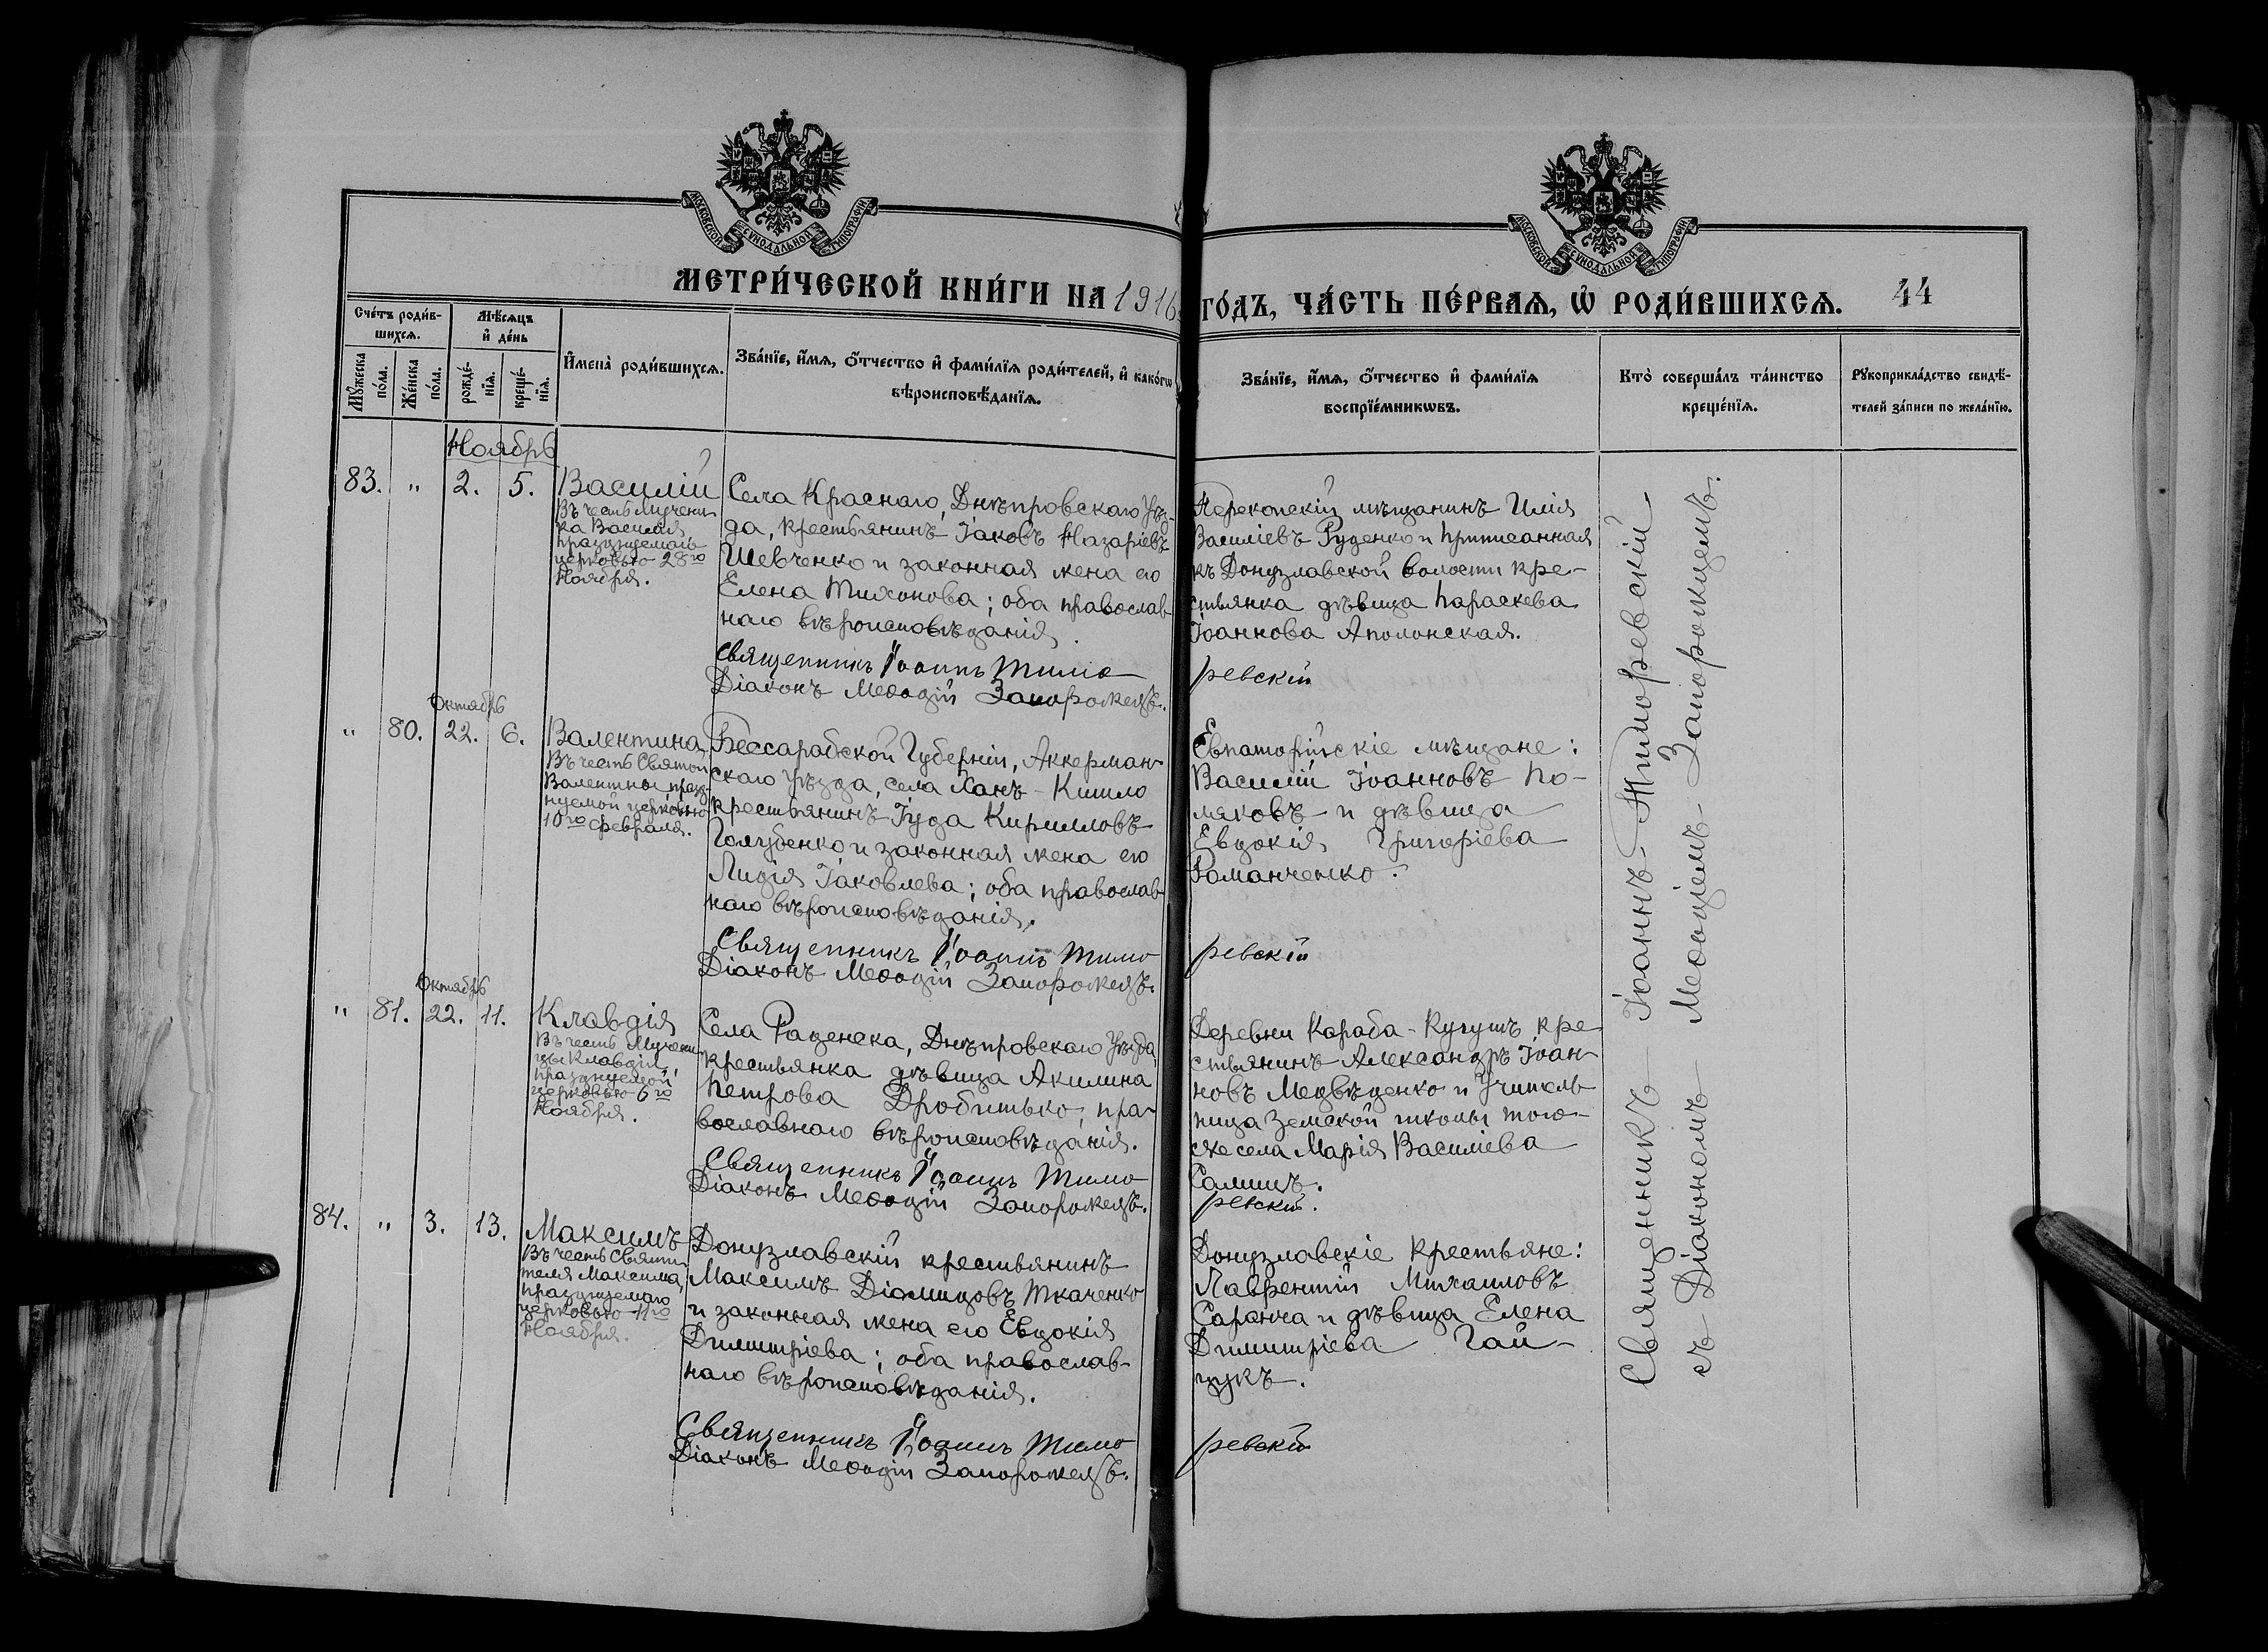 МОСКОВСКОЙ СѴНОДАЛЬНОЙ ТИПОГРАФІИ
МОСКОВСКОЙ СѴНОДАЛЬНОЙ ТИПОГРАФІИ
МЕТРИ́ЧЕСКОЙ КНИ́ГИ НА 1916
ГО́ДЪ, ЧА́СТЬ ПЕ́РВАѦ, Ѡ РОДИ́ВШИХСѦ. 44
Сче́тъ роди́в-
шихсѧ.
Мѣ́сѧцъ
и҆ де́нь
Мꙋ́жеска
по́ла.
Же́нска
по́ла.
рожде́-
нїѧ.
креще́-
нїѧ.
И҆мена̀ роди́вшихсѧ.
Зва́нїе, и҆́мѧ, ѻ҆́тчество и҆ фами́лїѧ роди́телей, и҆ како́гѡ
вѣроисповѣ́данїѧ.
Зва́нїе, и҆́мѧ, ѻ҆́тчество и҆ фами́лїѧ
воспрїе́мникѡвъ.
Кто̀ соверша́лъ та́инство
креще́нїѧ.
Рꙋкоприкла́дство свидѣ́-
телей за́писи по жела́нїю.
Ноябрь
83. " 2. 5.
Василій
Въ честь Мучени-
ка Василія
празднуемаго
церковью 28го
Ноября.
Села Краснаго, Днѣпровскаго Уѣз-
да, крестьянинъ Іаковъ Назаріевъ
Шевченко и законная жена его
Елена Тихонова; оба православ-
наго вѣроисповѣданія.
Священникъ Іоаннъ Тимо
Діаконъ Меѳодій Запорожецъ.
Перекопскій мѣщанинъ Илія
Василіевъ Руденко и приписанная
къ Донузлавской волости кре-
стьянка дѣвица Параскева
Іоаннова Аполонская.
ревскій
Октябрь
" 80. 22. 6.
Валентина
Въ честь Святой
Валентины празд-
нуемой церковью
10го февраля.
Бессарабской Губерніи, Аккерман-
скаго Уѣзда, села Ханъ-Кишло
крестьянинъ Іуда Кирилловъ
Голубенко и законная жена его
Лидія Іаковлева; оба православ-
наго вѣроисповѣданія.
Священникъ Іоаннъ Тимо
Діаконъ Меѳодій Запорожецъ.
Евпаторійскіе мѣщане:
Василій Іоанновъ По-
ляковъ и дѣвица
Евдокія Григоріева
Романченко.
ревскій
Октябрь
" 81. 22. 11.
Клавдія
Въ честь Мучени-
цы Клавдіи
празднуемой
церковью 6го
Ноября.
Села Раденска, Днѣпровскаго Уѣзда,
крестьянка дѣвица Акилина
Петрова Дробитько, пра-
вославнаго вѣроисповѣданія.
Священникъ Іоаннъ Тимо
Діаконъ Меѳодій Запорожецъ.
Деревни Караба-Кугушъ кре-
стьянинъ Александръ Іоан-
новъ Медвѣденко и Учитель-
ница Земской школы того-
же села Марія Василіева
Салишъ.
ревскій.
84. " 3. 13.
Максимъ
Въ честь Святи-
теля Максима,
празднуемаго
церковью 11го
Ноября.
Донузлавскій крестьянинъ
Максимъ Діомидовъ Ткаченко
и законная жена его Евдокія
Димитріева; оба православ-
наго вѣроисповѣданія.
Священникъ Іоаннъ Тимо
Діаконъ Меѳодій Запорожецъ.
Донузлавскіе крестьяне:
Лаврентій Михаиловъ
Саранча и дѣвица Елена
Димитріева Гай-
дукъ.
ревскій
Священникъ Іоаннъ Тиморевскій
съ Діакономъ Меѳодіемъ Запорожцемъ.